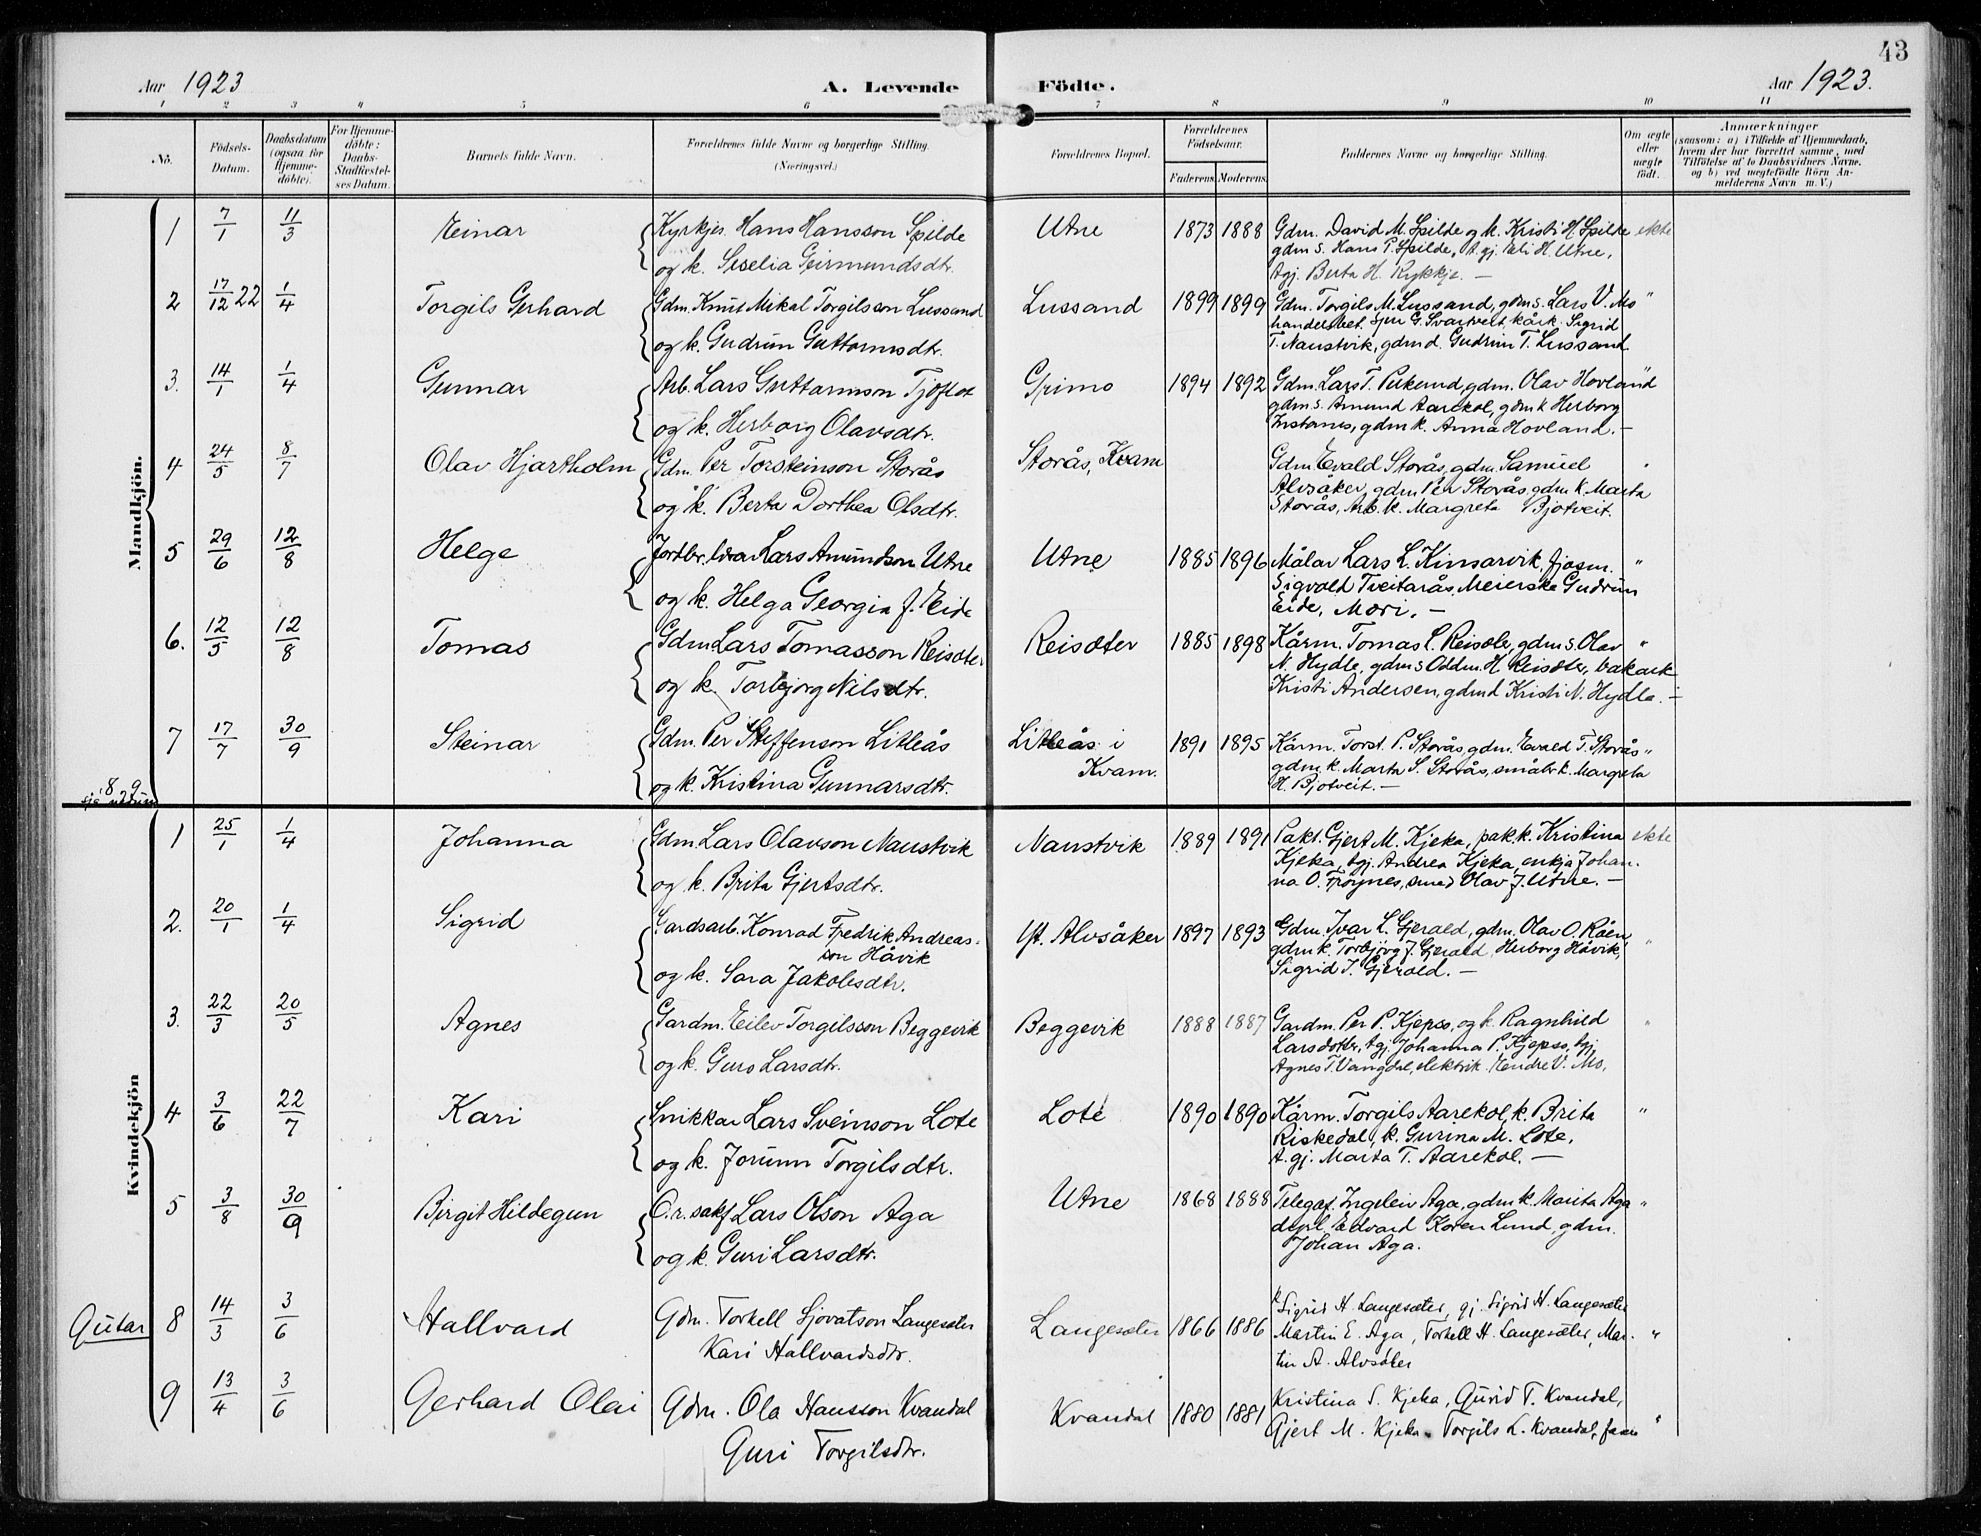 43
Aar 1923
A. Levende
Födte.
Aar 1923.
1 2 3 4 5 6 7 8 9 10 11
No.
Födsels-Datum.
Daabsdatum (ogsaa for Hjemme-döbte).
For Hjemme-döbte: Daabs-Stadfæstel-ses Datum.
Barnets fulde Navn.
Forældrenes fulde Navne og borgerlige Stilling.
(Næringsvei.)
Forældrenes Bopæl.
Forældrenes Födselsaar.
Faderens Moderens
Faddernes Navne og borgerlige Stilling.
Om ægte eller uægte födt.
Anmærkninger
(saasom: a) i Tilfælde af Hjemmedaab,
hvem der har forrettet samme, med
Tilföielse af to Daabsvidners Navne.
og b) ved uægtefödte Börn An-
melderens Navn m. V.)
Mandkjön.
1 7/1 11/3 Einar Kyrkjes. Hans Hansson Spilde Utne 1873 1888 Gdm. David M. Spilde og k. Kristi H. Spilde ekte
og k. Seselia Geirmundsdtr. gdm s. Hans P. Spilde, t.gj. Eli H. Utne,
tgj. Berta H. Rykkje. —
2 17/12 22 1/4 Torgils Gerhard Gdm. Knut Mikal Torgilsson Lussand Lussand 1899 1899 Gdm. Torgils M. Lussand, gdm s. Lars V. Mo "
handelsbet. G. Svartveit, kårk. Sigrid
og k. Gudrun Guttormsdtr. T. Naustvik, gdm d. Gudrun T. Lussand
3. 14/1 1/4 Gunnar Arb. Lars Guttormson Tjoflot Grimo 1894 1892 Gdm. Lars T. gdm. Olav Hovland "
gdm s. Amund Aarekol, gdm k Herborg
og k. Herborg Olavsdtr. Instanes, gdm k. Anna Hovland. —
4 24/5 8/7 Olav Hjartholm Gdm. Per Torsteinson Storås Storås, Kvam Gdm Evald Storås, gdm. Samuel "
Alvsåker, gdm Per Storås, gdm k. Marta
og k. Berta Dorthea Olsdtr. Storås, Arb. k. Margreta Bjotveit.
5 29/6 12/8 Helge Jordbr. lærar Lars Amundson Utne Utne 1885 1896 Målar Lars L. Kinsarvik, fjosm. "
Sigvald Tveitarås, Meierske Gudrun
og k. Helga Georgia f. Eide Eide, Mori. —
6. 12/5 12/8 Tomas Gdm Lars Tomasson Reisæter Reisæter 1885 1898 Kårm. Tomas L. Reisæter, gdm s. Olav "
N. Hydle, gdm s Oddm. H. Reisæter, bakark
og k. Torbjorg Nilsdtr. Kristi Andersen, gdm d Kristi N. Hydle. —
7 17/7 30/9 Steinar Gdm. Per Steffenson Litleås Litleås i Kvam. 1891 1895 Kårm. Torst. P. Storås, gdm. Evald T. Storås "
gdm. k. Marta S. Storås, småbr. k. Margreta
og k. Kristina Gunnarsdtr. H. Bjotveit. —
8 9
sjå
Kvindekjön
1 25/1 1/4 Johanna Gdm. Lars Olavson Naustvik Naustvik 1889 1891 Pakt. Gjert M. Kjeka, pak.k. Kristina ekte
Kjeka, tgj. Andrea Kjeka, enkja Johan-
og k. Brita Gjertsdtr. na O. Frøynes, smed Olav J. Utne. —
2. 20/1 1/4 Sigrid Gardsarb. Konrad Fredrik Andreas- Yt. Alvsåker 1897 1893 Gdm. Ivar L. Gjerald, gdm. Olav O. Råen,
son Håvik gdm k. Torbjørg J. Gjerald, Herborg Håvik, "
og k. Sara Jakobsdtr. Sigrid I. Gjerald. —
3. 22/3 20/5 Agnes Gardm. Eilev Torgilsson Beggevik Beggevik 1888 1887 Gardm. Per P. Kjepso, og k. Ragnhild "
Larsdotter, tgj. Johanna P. Kjepso, tgj.
og k. Guro Larsdtr. Agnes T. Vangdal, elektrik. Endre V. Mo.
4 3/6 22/7 Kari Snikkar Lars Sveinson Lote Lote 1890 1890 Kårm. Torgils Aarekol, k. Brita "
Riskedal, k. Gurina M. Lote,
og k. Jorunn Torgilsdtr. t.gj. Marta T. Aarekol. —
5 3/8 30/9 Birgit Hildegun O.r. sakf Lars Olson Aga Utne 1868 1888 Telegraf. Ingeleiv Aga, gdm k. Marita Aga "
Edvard Koren Lund, gdm.
og k. Guri Larsdtr. Johan Aga.
Gutar 8 14/3 3/6 Hallvard Gdm. Torkell Sjovatson Langesæter Langesæter 1866 1886 k Sigrid H. Langesæter, gj. Sigrid H. Langesæter
Martin E. Aga, Torkell H. Langesæter, Mar- "
Kari Hallvardsdtr. tin A. Alvsåker
9 13/4 3/6 Gerhard Olai Gdm. Ola Hansson Kvandal Kvandal 1880 1881 Kristina S. Kjeka, Gurid T. Kvandal,
Guri Torgilsdtr. Gjert M. Kjeka Torgils L. Kvandal, "